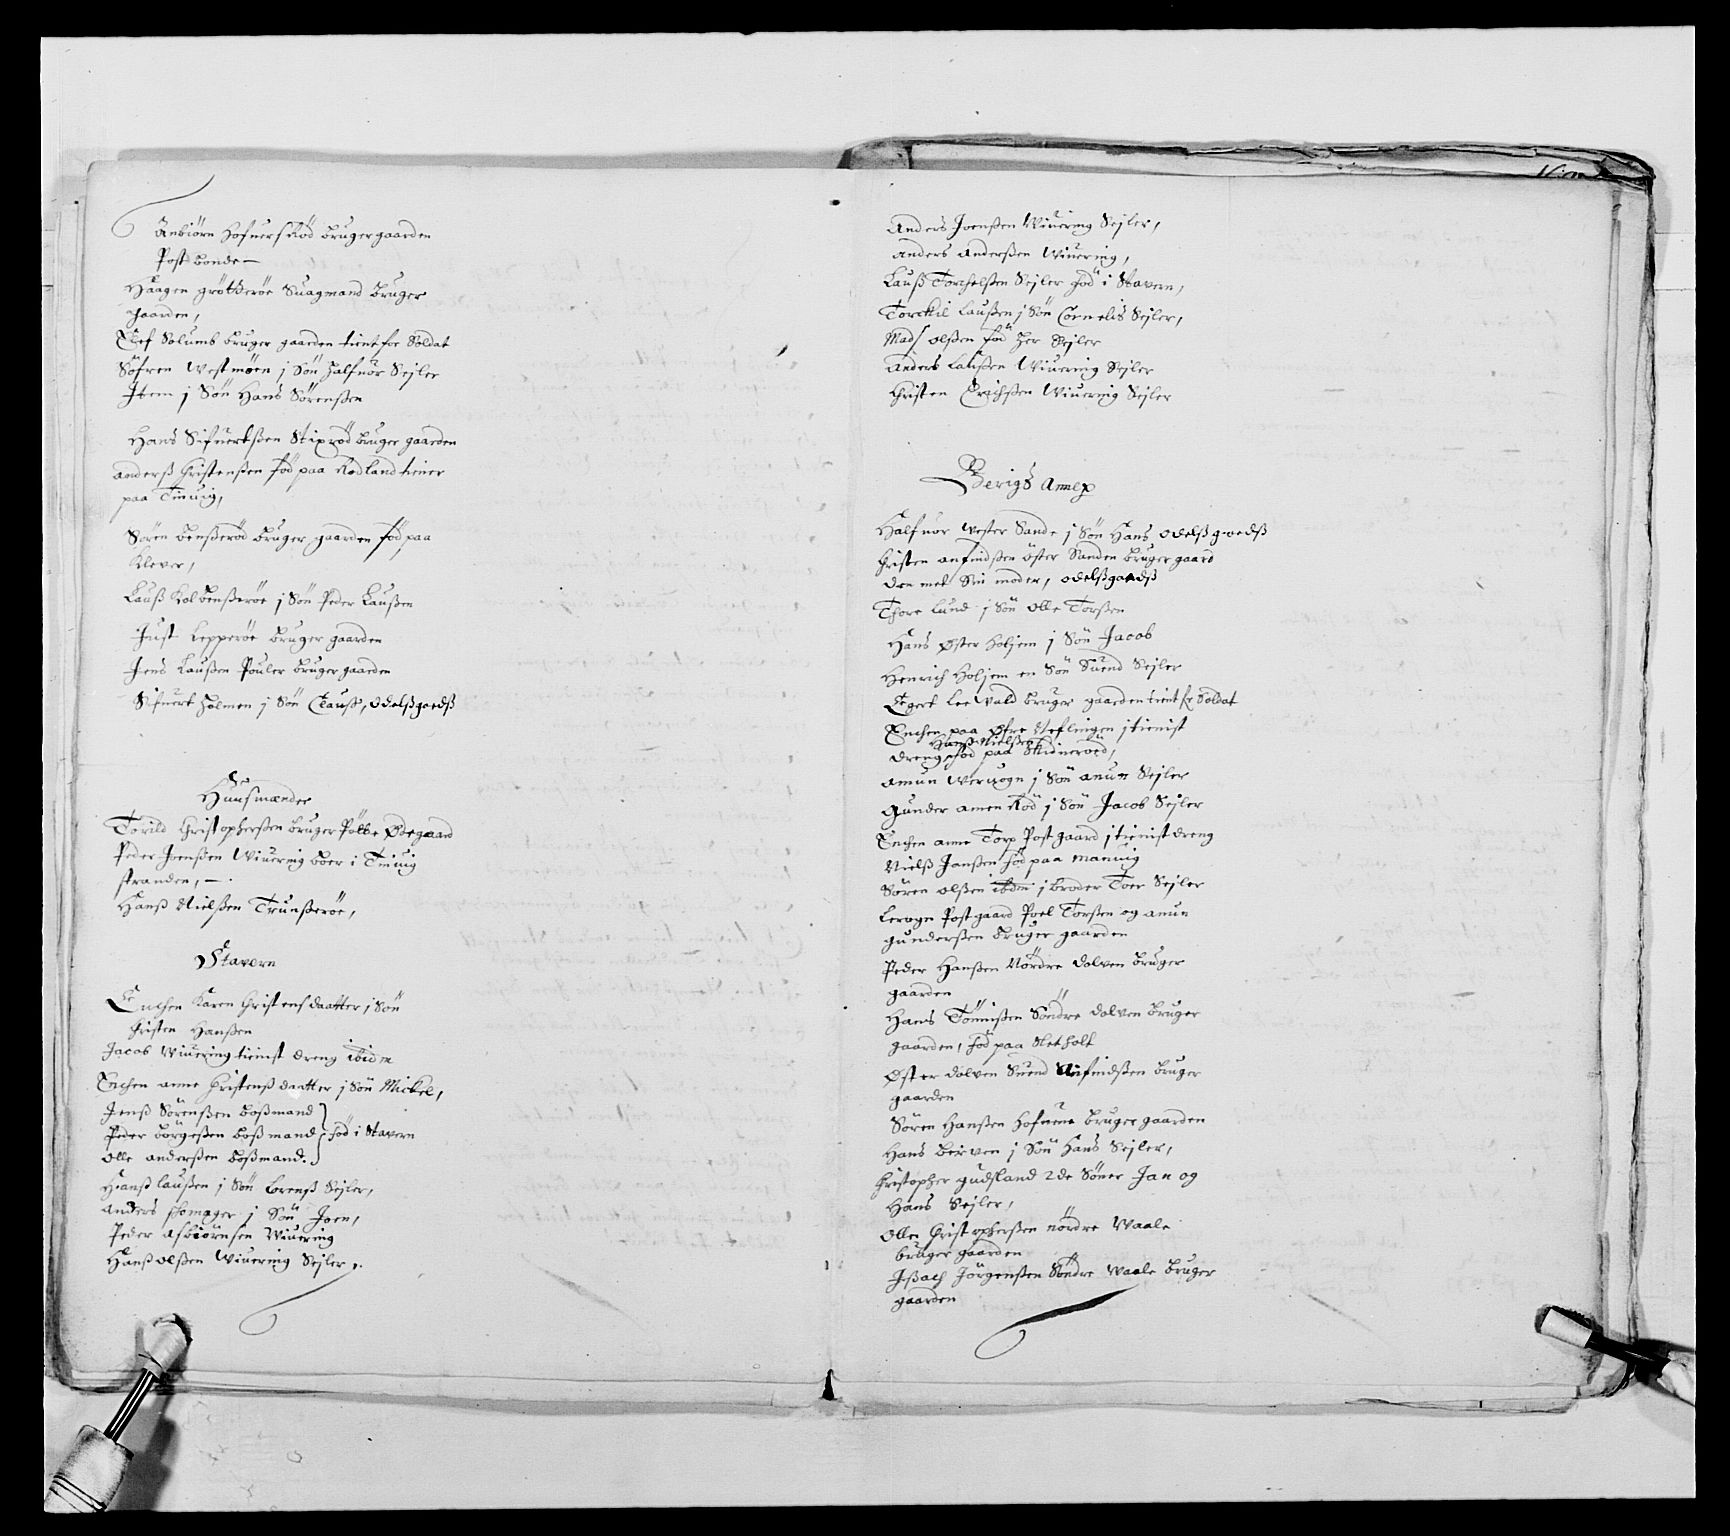 Anbiörn Hofuersröd bruger gaarden
Post bonde
Haagen gröttterøe Suagmand bruger
gaarden,
Elef Solumb bruger gaarden tient for Soldat
Söfren Westmöen j Sön Halfuor Sejler
Jtem j Sön Hans Sörensßen
Hans Sifuertßen Stixröd bruger gaarden
anderß Christenßen föd paa Rödland tiener
paa Tinuig,
Sören benßeröd bruger gaarden föd paa
Klever,
Lauß Kolbenßeröe j Sön Peder Laußen
Just Lepperöe bruger gaarden
Jens Laußen Pouler bruger gaarden
Sifuert Holmen j Sön Clauß, odelßgodß
Huusmænder
Torild Christopherßen bruger Pölle Ødegaard
Peder Joenßen Wiuering boer i Tinuig
stranden,
Hanß Nielßen Trunßeröe,
Stavern
Enchen Karen Christensdaatter j Sön
Christen Hanßen
Jacob Wiuering tienist dreng ibidm
Enchen anne Christenßdaatter j Sön Mickel,
Jenß Sörenßen boßmand
Peder börgeßen boßmand föd i Stavern
olle anderßen boßmand.
Hanß laußen j Sön Lorenß Sejler,
anders skomager j Sön Joen,
Peder Asbiörnsen Wiuering
Hanß olßen Wiuering Sejler,
Anders Joenßen Wiuering Sejler,
anders Anderßen Wiuering,
Lauß Torchelßen Sejler föd i Stavern,
Torckil Laußen j Sön Cornelis Sejler,
Mads olßen föd her Sejler
anders Laußen Wiuering Sejler
Christen Erichßen Wiuering Sejler
Berigs Annex
Halfuor Wester Sande j Sön Hans odelßgodß
Christen anfindßen öster Sanden bruger gaard
den met Sin moder, odelßgodß
Thore Lund j Sön olle Torßen
Hans Øster Holjem j Sön Jacob
Henrich Holjem en Sön Suend Sejler
Egert Lee Wald bruger gaarden tient for Soldat
Enchen paa Øfre Neflingen j tienist
Hanß Nielßen
dreng föd paa Skinneröed,
amun Wersogn j Sön anun Sejler
Gunder amen Röd j Sön Jacob Sejler
Enchen anne Torp Postgaard j tienist dreng
Nielß Janßen föd paa Manuig
Sören olßen ibdm j broder Toer Sejler
Lerogn Postgaard Poel Torsten og anun
gunderßen bruger gaarden
Peder Hanßen Nördre dolven bruger
gaarden
Hans Tönnißen Söndre dolven bruger
gaarden, föd paa Netholt
Øster dolven Suend Anfindßen bruger
gaarden
Sören Hanßen Hofuene bruger gaarden
Hans berven j Sön Hans Sejler,
Christopher gudsland 2de Söner Jan og
Hans Sejler,
olle Christopherßen nördre Waale
bruger gaarden
Jßach Jörgenßen Söndre Waale bruger
gaarden